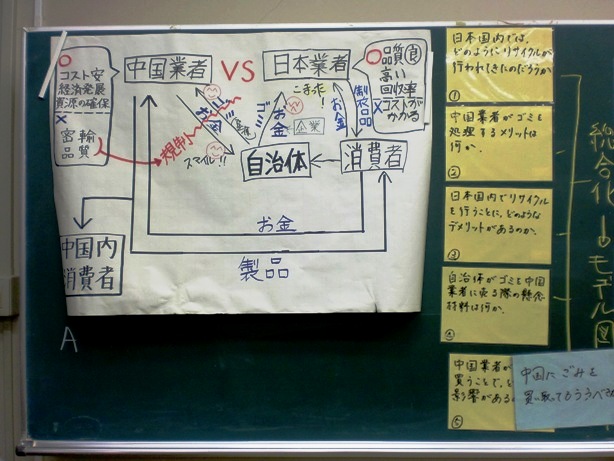 ○
コスト安
経済発展
資源の確保
×
密輸
品質
中国業者
VS
日本業者
○品質良
高い
回収率
×コストが
かかる
こまった!
製品
お金
お金
ゴミ
ゴミ
お金
規制
スマイル!!
企業
自治体
消費者
お金
製品
中国内
消費者
A
日本国内では、
どのようにリサイクルが
行われてきたのだろうか
①
中国業者がゴミを
処理するメリットは
何か.
②
日本国内でリサイクル
を行うことに、どのような
デメリットがあるのか.
③
自治体がゴミを中国
業者に売る際の懸念
材料は何か.
④
中国業者が
買うことで、
影響がある
⑤
中国にごみを
買い取ってもらうべき
総合化→モデル図